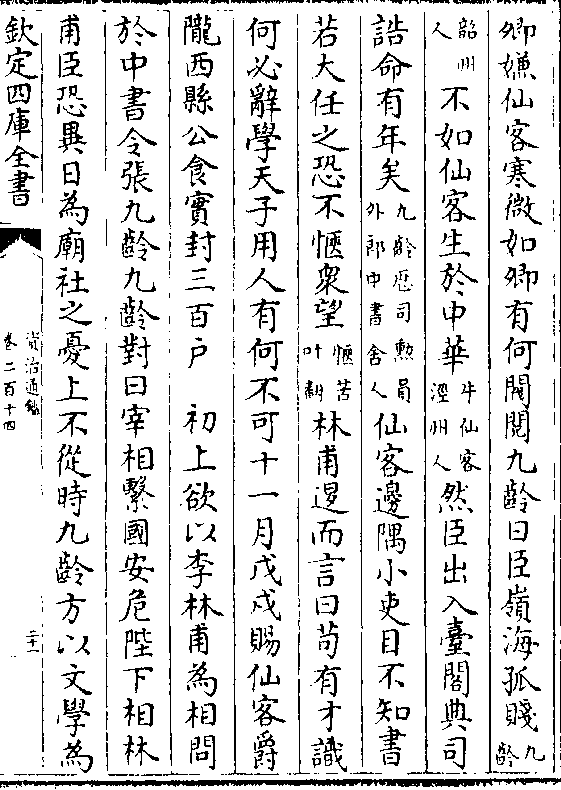 卿嫌仙客寒微如卿有何閥閲九齡曰臣嶺海孤賤九齡
韶州人不如仙客生於中華牛仙客涇州人然臣出入臺閣典司
誥命有年矣九齡歴司勲員外郎中書舍人仙客邊隅小吏目不知書
若大任之恐不愜衆望愜苦叶翻林甫退而言曰苟有才識
何必辭學天子用人有何不可十一月戊戌賜仙客爵
隴西縣公食實封三百户　初上欲以李林甫為相問
於中書令張九齡九齡對曰宰相繫國安危陛下相林
甫臣恐異日為廟社之憂上不從時九齡方以文學為
欽定四庫全書
資治通鑑
卷二百十四
二十一